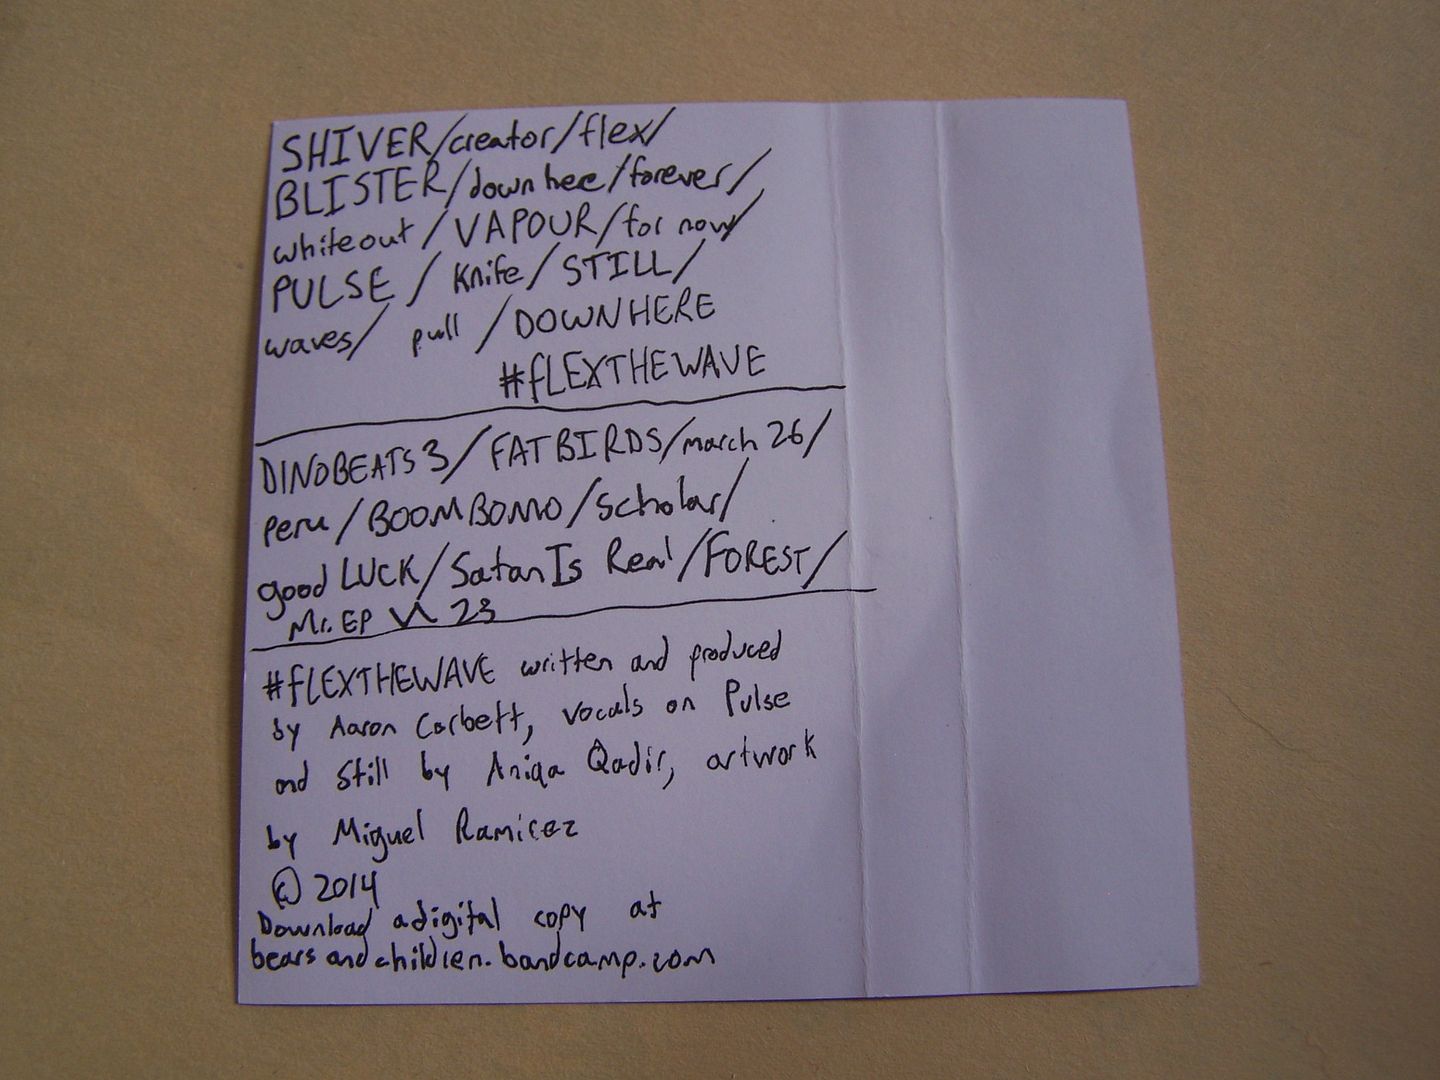 SHIVER/creator/flex/
BLISTER/down here/forever/
whiteout/VAPOUR/for now/
PULSE/knife/STILL/
waves/pull/DOWNHERE
#fLEXTHEWAVE
DINOBEATS 3/FATBIRDS/march 26/
Peru/BOOMBOMO/scholar/
good LUCK/Satan Is Real/FOREST/
Mr. EP 23
#fLEXTHEWAVE written and produced
by Aaron Corbett, vocals on Pulse
and Still by Aniqa Qadir, artwork
by Miguel Ramirez
© 2014
Download a digital copy at
bearsandchildren.bandcamp.com